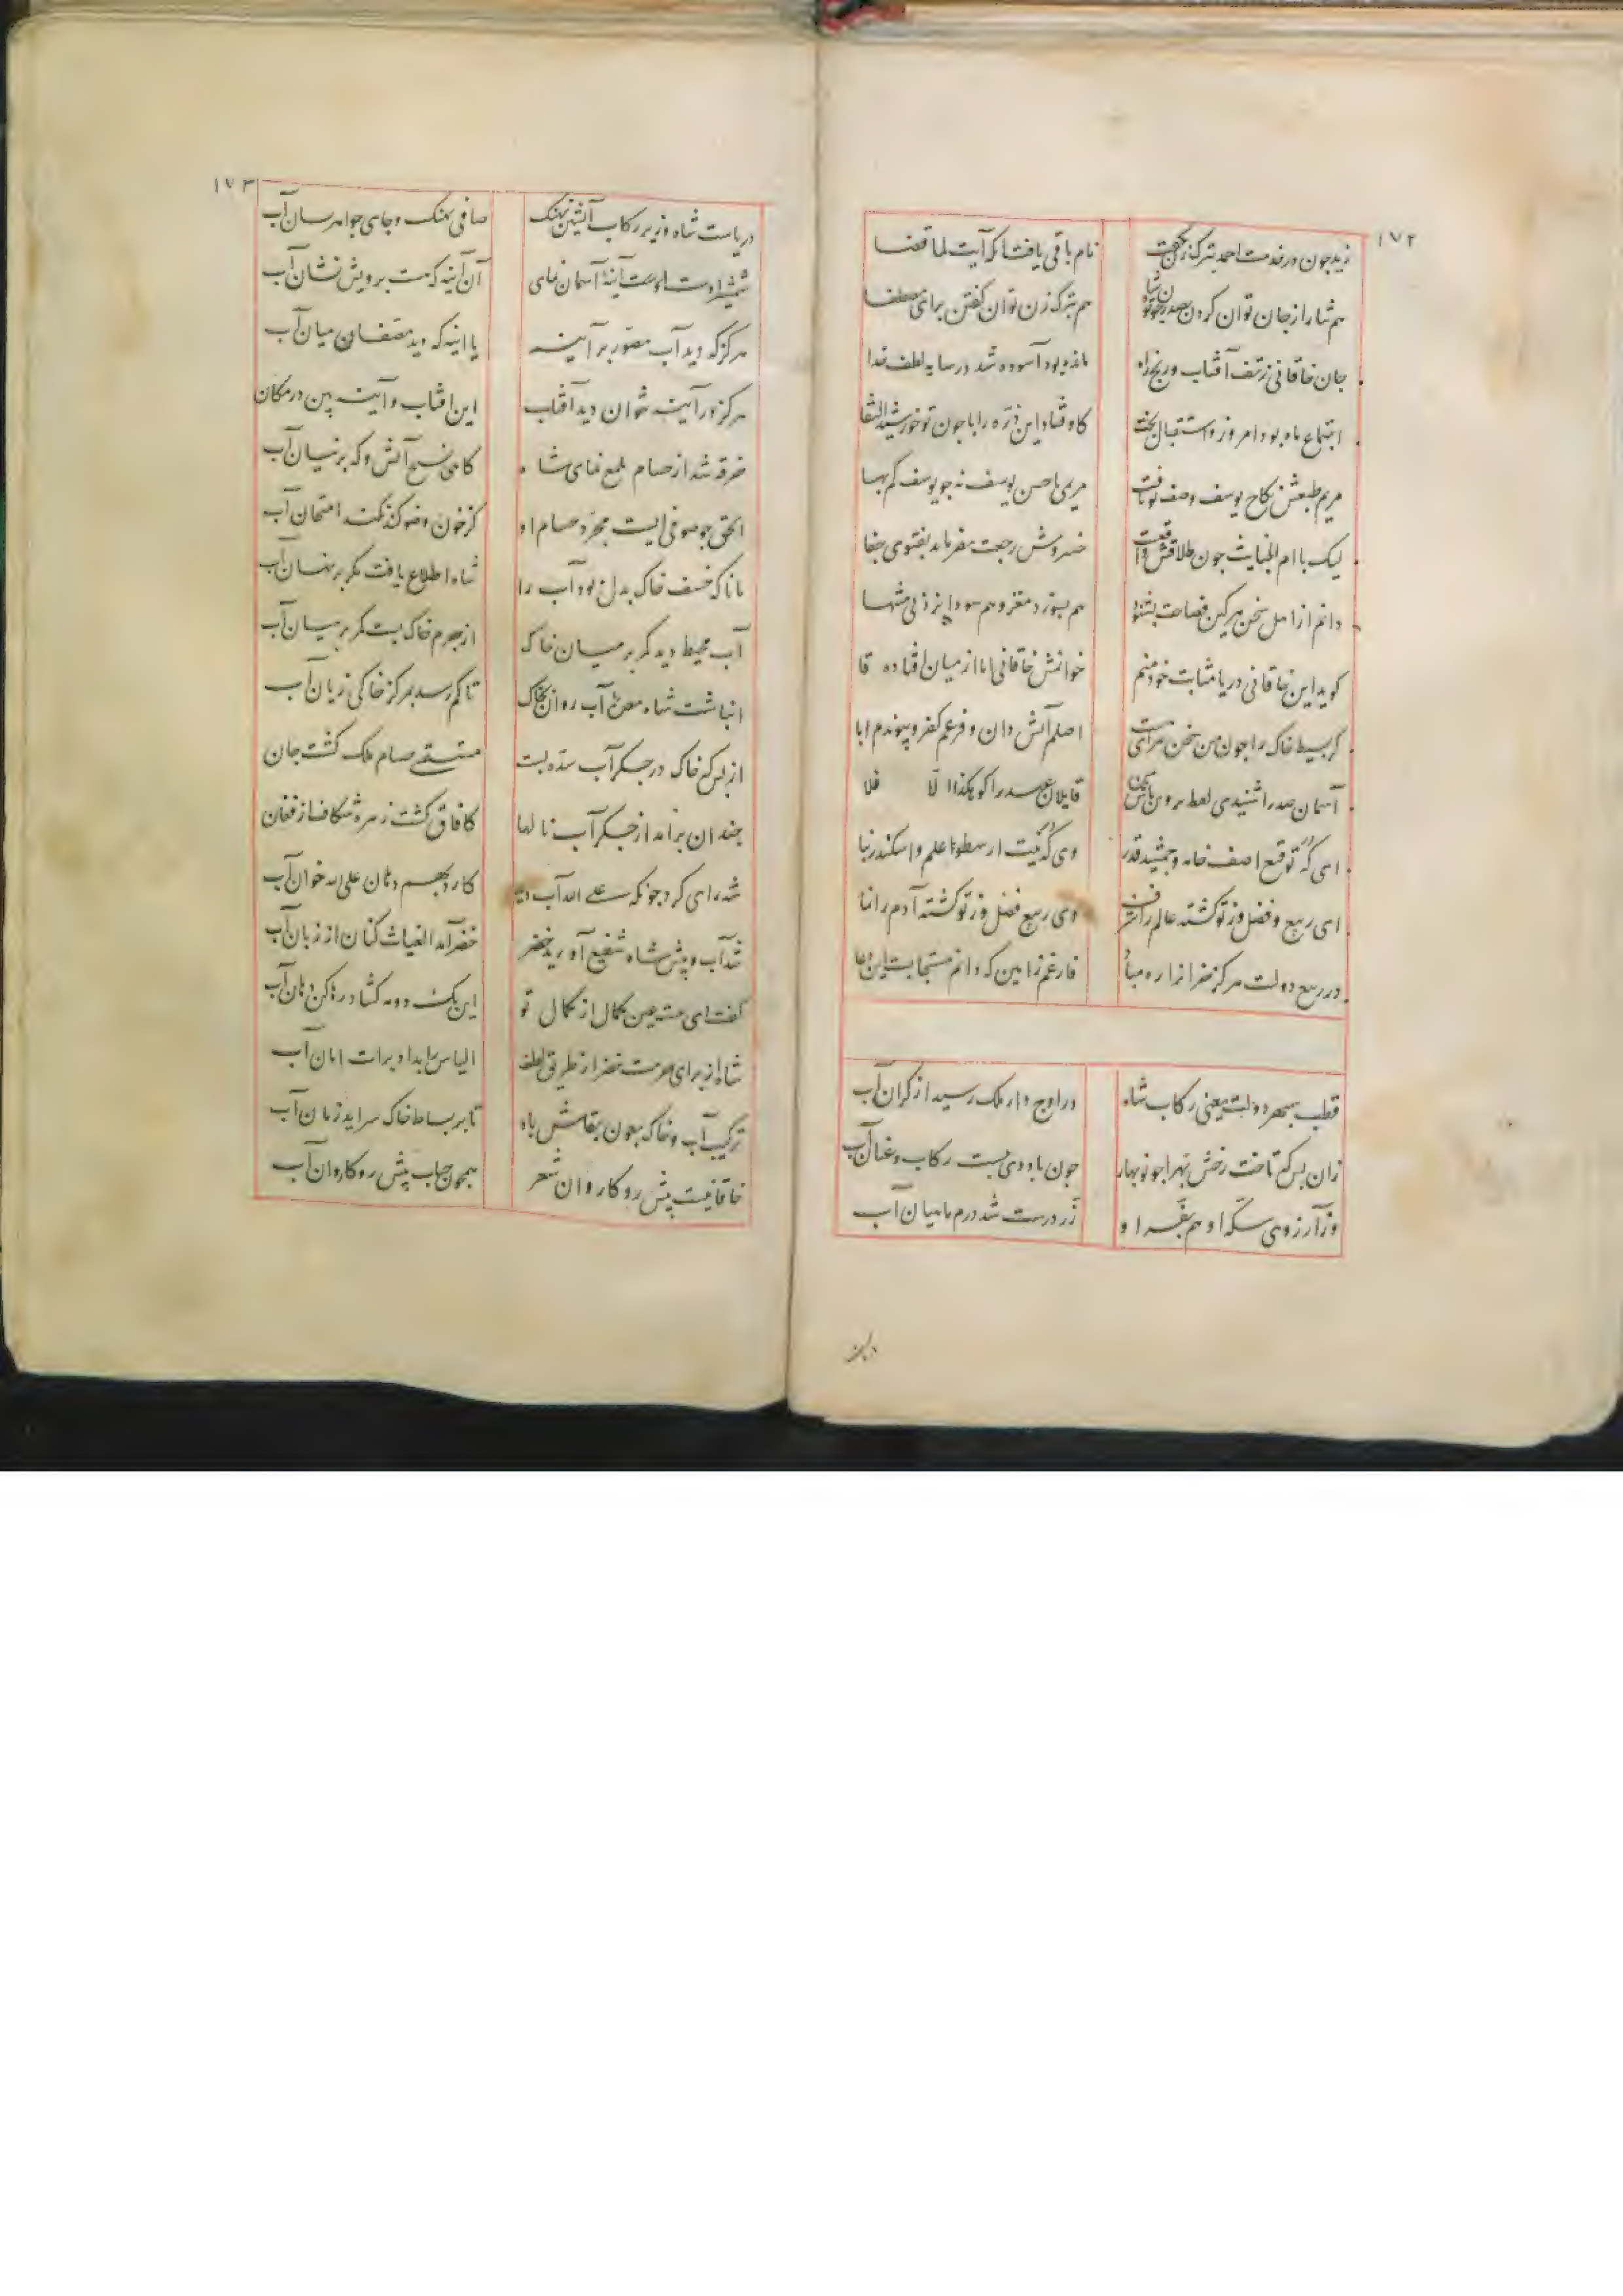 ۱۷۲
زید چون در خدمت احمد بترک زن بگفت نام باقی یافت اینک آیت لما قضا
هم شما را از جان توان کردن بصدر چون تو شاه هم بترک زن توان گفتن برای مصطفا
جان خاقانی ز تف آفتاب و رنج راه مانده بود آسوده شد در سایه لطف خدا
اجتماع ماه بود امروز و استقبال بخت کاوفتاد این ذره را با چون تو خورشید التقا
مریم طبعش نکاح یوسف وصف تو یافت مریمی با حسن یوسف نه چو یوسف کم بها
لیک با ام الخبایث چون طلاقش واقعست خسروش رجعت نفرماید بفتوی جفا
دانم از اهل سخن هرکین فصاحت بشنود هم بسوزد مغز و هم سودا پزد بی منتها
گوید این خاقانی دریا مثابت خود منم خوانمش خاقانی اما از میان افتاده قا
گر بسیط خاک را چون من سخن سرای است اصلم آتش دان و فرعم کفر و پیوندم ابا
آسمان صدرا شنیدی لفظ بروین بین قایلان عهد را گو هکذا الا فلا
ای که توقیع آصف خامه و جمشید قدر وی که نیت ارسطو علم و اسکندر بنا
ای ربیع و فضل وز تو گشته عالم را شرف وی ربیع فضل وز تو گشته آدم را نما
در ربیع دولت هرگز خزانرا ره مباد فارغم زآمین که دانم مستجابست این دعا
قطب سپهر دولت یعنی رکاب شاه در اوج دار ملک رسید از کران آب
زان بس که تاخت رخش بهرا چو نوبهار چون باد دی ببست رکاب و عنان آب
وز آرزوی سکه او هم بفر او زر درست شد درم ماهیان آب
۱۷۳
دریاست شاه و زیر رکاب آتشین نهنگ صافی نهنگ و جای جواهرسان آب
شمشیر اوست آینه آسمان نمای آن آینه که هست برویش نشان آب
هرگز که دید آب مصور بر آینه یا آینه که دید مصفا میان آب
هرگز در آینه نتوان دید آفتاب این آفتاب و آینه بین در مکان
خرقه شد از حسام ملمع نمای شاه گاهی نسیج آتش و گه پرنیان آب
الحق چو صوفی ایست مجرد حسام او کز خون وضو کند نکند امتحان آب
مانا که خسف خاک بدل بود آب را شاه اطلاع یافت مگر بر نهان آب
آب محیط دید گمر بر میان خاک از جرم خاک بست کمر بر میان آب
انباشت شاه معدن آب روان بخاک تا کم رسد بمرکز خاکی زیان آب
از بس که خاک در جگر آب سده بست مستسقی حسام ملک گشت جان
چندان برآمد از جگر آب نالها کافاق گشت زهره شکاف از فغان
شه رای کرد چونکه علی الله آب دید کارد بهم دهان علی الله خوان آب
شد آب و پیش شاه شفیع آورید خضر خضر آمد الغیاث کنان از زبان آب
گفت ای مشترین کمال از کمال تو این یک دو مه گشاد رها کن دهان آب
شاه از برای حرمت خضر از طریق لطف الیاس را بداد برات امان آب
ترکیب آب و خاک بعون بقاش باد تا بر بساط خاک سراید زمان آب
خاقانیست پیش رو کاروان شعر همچون حباب پیش رو کاروان آب